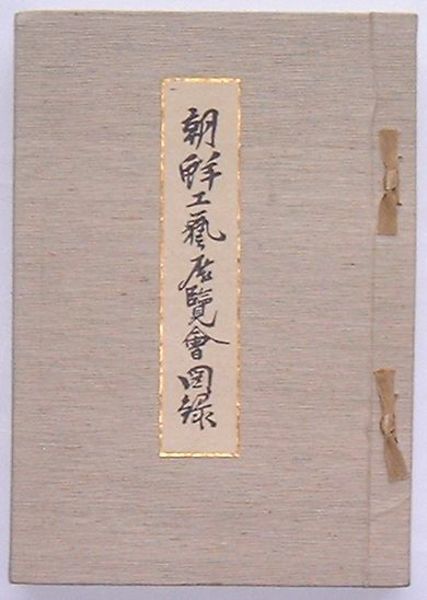 朝鮮工藝展覧會図録